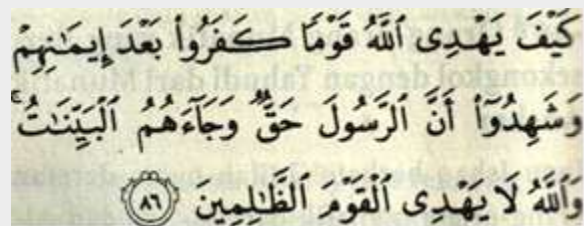 كَيْفَ يَهْدِى ٱللَّهُ قَوْمًا كَفَرُوا۟ بَعْدَ إِيمَٰنِهِمْ
وَشَهِدُوٓا۟ أَنَّ ٱلرَّسُولَ حَقٌّ وَجَآءَهُمُ ٱلْبَيِّنَٰتُ ۚ
وَٱللَّهُ لَا يَهْدِى ٱلْقَوْمَ ٱلظَّٰلِمِينَ ٨٦